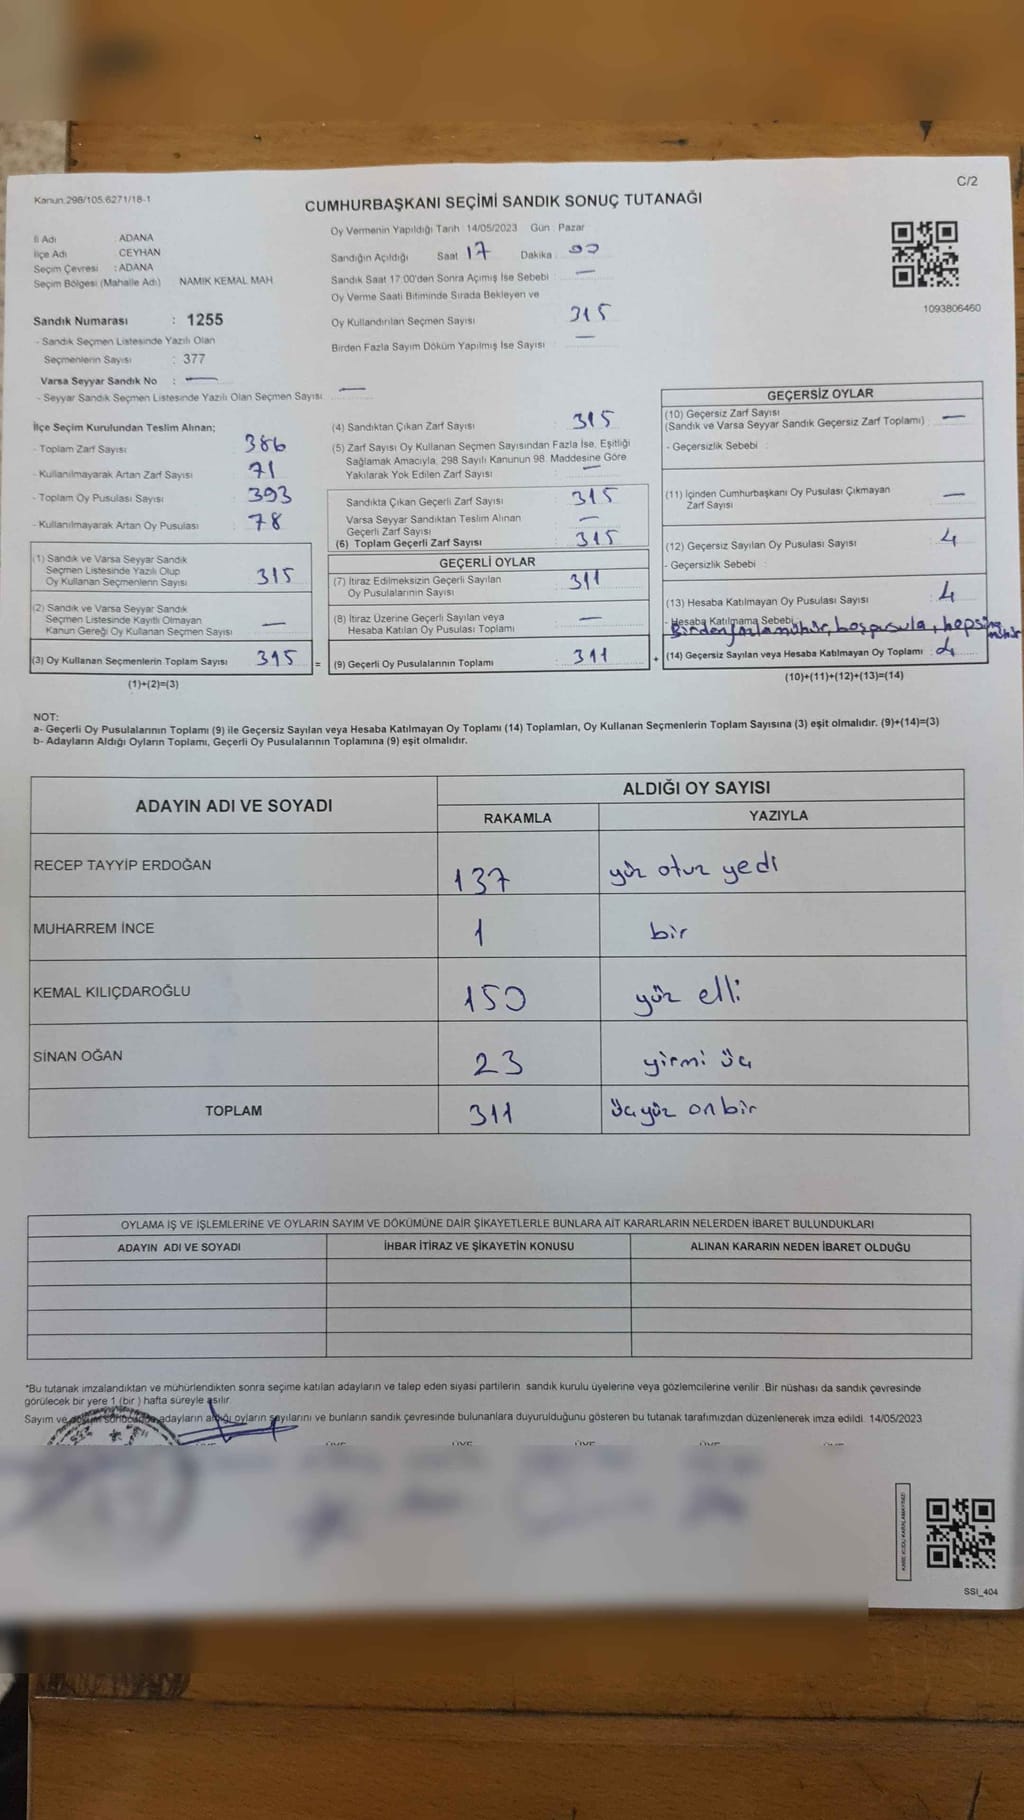 C/2
Kanun:298/105.6271/18-1
CUMHURBAŞKANI SEÇİMİ SANDIK SONUÇ TUTANAĞI
İl Adı : ADANA
İlçe Adı : CEYHAN
Seçim Çevresi : ADANA
Seçim Bölgesi (Mahalle Adı) NAMIK KEMAL MAH
Sandık Numarası : 1255
- Sandık Seçmen Listesinde Yazılı Olan
Seçmenlerin Sayısı : 377
Varsa Seyyar Sandık No : —
- Seyyar Sandık Seçmen Listesinde Yazılı Olan Seçmen Sayısı —
Oy Vermenin Yapıldığı Tarih 14/05/2023 Gün : Pazar
Sandığın Açıldığı Saat 17 Dakika : 00
Sandık Saat 17:00'den Sonra Açılmış İse Sebebi : —
Oy Verme Saati Bitiminde Sırada Bekleyen ve
Oy Kullandırılan Seçmen Sayısı 315
Birden Fazla Sayım Döküm Yapılmış İse Sayısı : —
1093806460
İlçe Seçim Kurulundan Teslim Alınan;
- Toplam Zarf Sayısı : 386
- Kullanılmayarak Artan Zarf Sayısı : 71
- Toplam Oy Pusulası Sayısı : 393
- Kullanılmayarak Artan Oy Pusulası : 78
(1) Sandık ve Varsa Seyyar Sandık
Seçmen Listesinde Yazılı Olup
Oy Kullanan Seçmenlerin Sayısı : 315
(2) Sandık ve Varsa Seyyar Sandık
Seçmen Listesinde Kayıtlı Olmayan
Kanun Gereği Oy Kullanan Seçmen Sayısı : —
(3) Oy Kullanan Seçmenlerin Toplam Sayısı : 315 =
(1)+(2)=(3)
(4) Sandıktan Çıkan Zarf Sayısı : 315
(5) Zarf Sayısı Oy Kullanan Seçmen Sayısından Fazla İse, Eşitliği
Sağlamak Amacıyla, 298 Sayılı Kanunun 98. Maddesine Göre
Yakılarak Yok Edilen Zarf Sayısı : —
Sandıkta Çıkan Geçerli Zarf Sayısı : 315
Varsa Seyyar Sandıktan Teslim Alınan
Geçerli Zarf Sayısı : —
(6) Toplam Geçerli Zarf Sayısı : 315
GEÇERLİ OYLAR
(7) İtiraz Edilmeksizin Geçerli Sayılan
Oy Pusulalarının Sayısı : 311
(8) İtiraz Üzerine Geçerli Sayılan veya
Hesaba Katılan Oy Pusulası Toplamı : —
(9) Geçerli Oy Pusulalarının Toplamı : 311 +
GEÇERSİZ OYLAR
(10) Geçersiz Zarf Sayısı
(Sandık ve Varsa Seyyar Sandık Geçersiz Zarf Toplamı) : —
- Geçersizlik Sebebi :
(11) İçinden Cumhurbaşkanı Oy Pusulası Çıkmayan
Zarf Sayısı : —
(12) Geçersiz Sayılan Oy Pusulası Sayısı : 4
- Geçersizlik Sebebi :
(13) Hesaba Katılmayan Oy Pusulası Sayısı : 4
- Hesaba Katılmama Sebebi
Birden fazla mühür, boş pusula, hepsine mühür
(14) Geçersiz Sayılan veya Hesaba Katılmayan Oy Toplamı : 4
(10)+(11)+(12)+(13)=(14)
NOT:
a- Geçerli Oy Pusulalarının Toplamı (9) ile Geçersiz Sayılan veya Hesaba Katılmayan Oy Toplamı (14) Toplamları, Oy Kullanan Seçmenlerin Toplam Sayısına (3) eşit olmalıdır. (9)+(14)=(3)
b- Adayların Aldığı Oyların Toplamı, Geçerli Oy Pusulalarının Toplamına (9) eşit olmalıdır.
ADAYIN ADI VE SOYADI ALDIĞI OY SAYISI
RAKAMLA YAZIYLA
RECEP TAYYİP ERDOĞAN 137 yüz otuz yedi
MUHARREM İNCE 1 bir
KEMAL KILIÇDAROĞLU 150 yüz elli
SİNAN OĞAN 23 yirmi üç
TOPLAM 311 üçyüz onbir
OYLAMA İŞ VE İŞLEMLERİNE VE OYLARIN SAYIM VE DÖKÜMÜNE DAİR ŞİKAYETLERLE BUNLARA AİT KARARLARIN NELERDEN İBARET BULUNDUKLARI
ADAYIN ADI VE SOYADI İHBAR İTİRAZ VE ŞİKAYETİN KONUSU ALINAN KARARIN NEDEN İBARET OLDUĞU
*Bu tutanak imzalandıktan ve mühürlendikten sonra seçime katılan adayların ve talep eden siyasi partilerin sandık kurulu üyelerine veya gözlemcilerine verilir. Bir nüshası da sandık çevresinde
görülecek bir yere 1 (bir) hafta süreyle asılır.
Sayım ve döküm sonucunda adayların aldığı oyların sayılarını ve bunların sandık çevresinde bulunanlara duyurulduğunu gösteren bu tutanak tarafımızdan düzenlenerek imza edildi. 14/05/2023
SSI_404